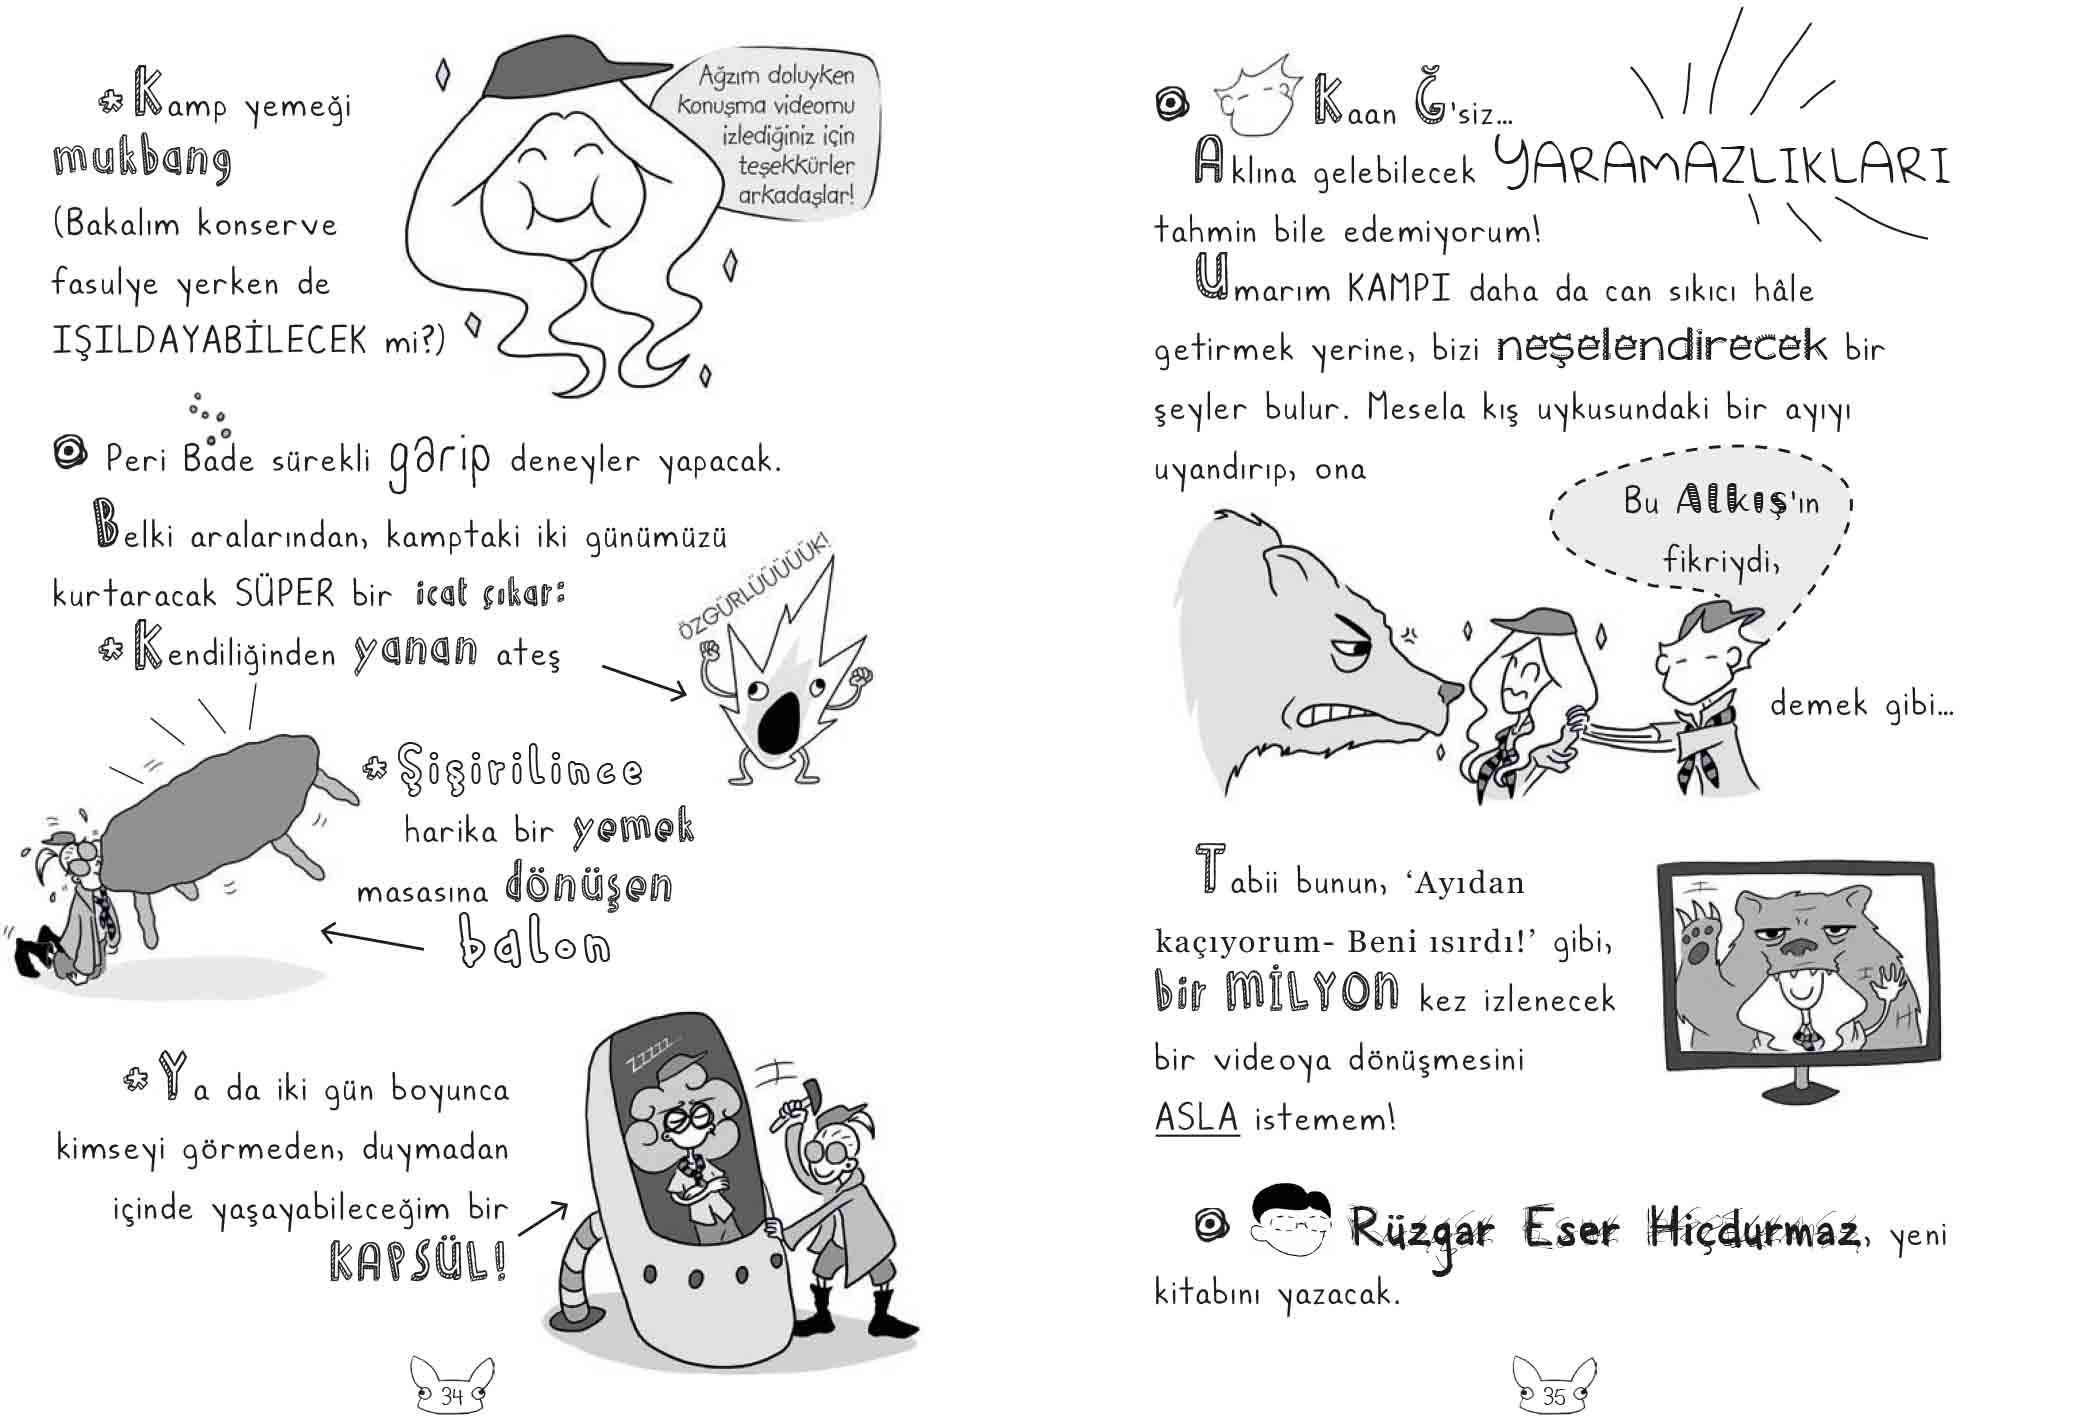 * Kamp yemeği
mukbang
(Bakalım konserve
fasulye yerken de
IŞILDAYABİLECEK mi?)
Ağzım doluyken
konuşma videomu
izlediğiniz için
teşekkürler
arkadaşlar!
Peri Bade sürekli garip deneyler yapacak.
Belki aralarından, kamptaki iki günümüzü
kurtaracak SÜPER bir icat çıkar:
* Kendiliğinden yanan ateş
ÖZGÜRLÜÜÜÜÜK!
* Şişirilince
harika bir yemek
masasına dönüşen
balon
* Ya da iki gün boyunca
kimseyi görmeden, duymadan
içinde yaşayabileceğim bir
KAPSÜL!
ZZZZZ...
34
Kaan Ğ'siz...
Aklına gelebilecek YARAMAZLIKLARI
tahmin bile edemiyorum!
Umarım KAMPI daha da can sıkıcı hâle
getirmek yerine, bizi neşelendirecek bir
şeyler bulur. Mesela kış uykusundaki bir ayıyı
uyandırıp, ona
Bu Alkış'ın
fikriydi,
demek gibi...
Tabii bunun, ‘Ayıdan
kaçıyorum- Beni ısırdı!’ gibi,
bir MİLYON kez izlenecek
bir videoya dönüşmesini
ASLA istemem!
Rüzgar Eser Hiçdurmaz, yeni
kitabını yazacak.
35